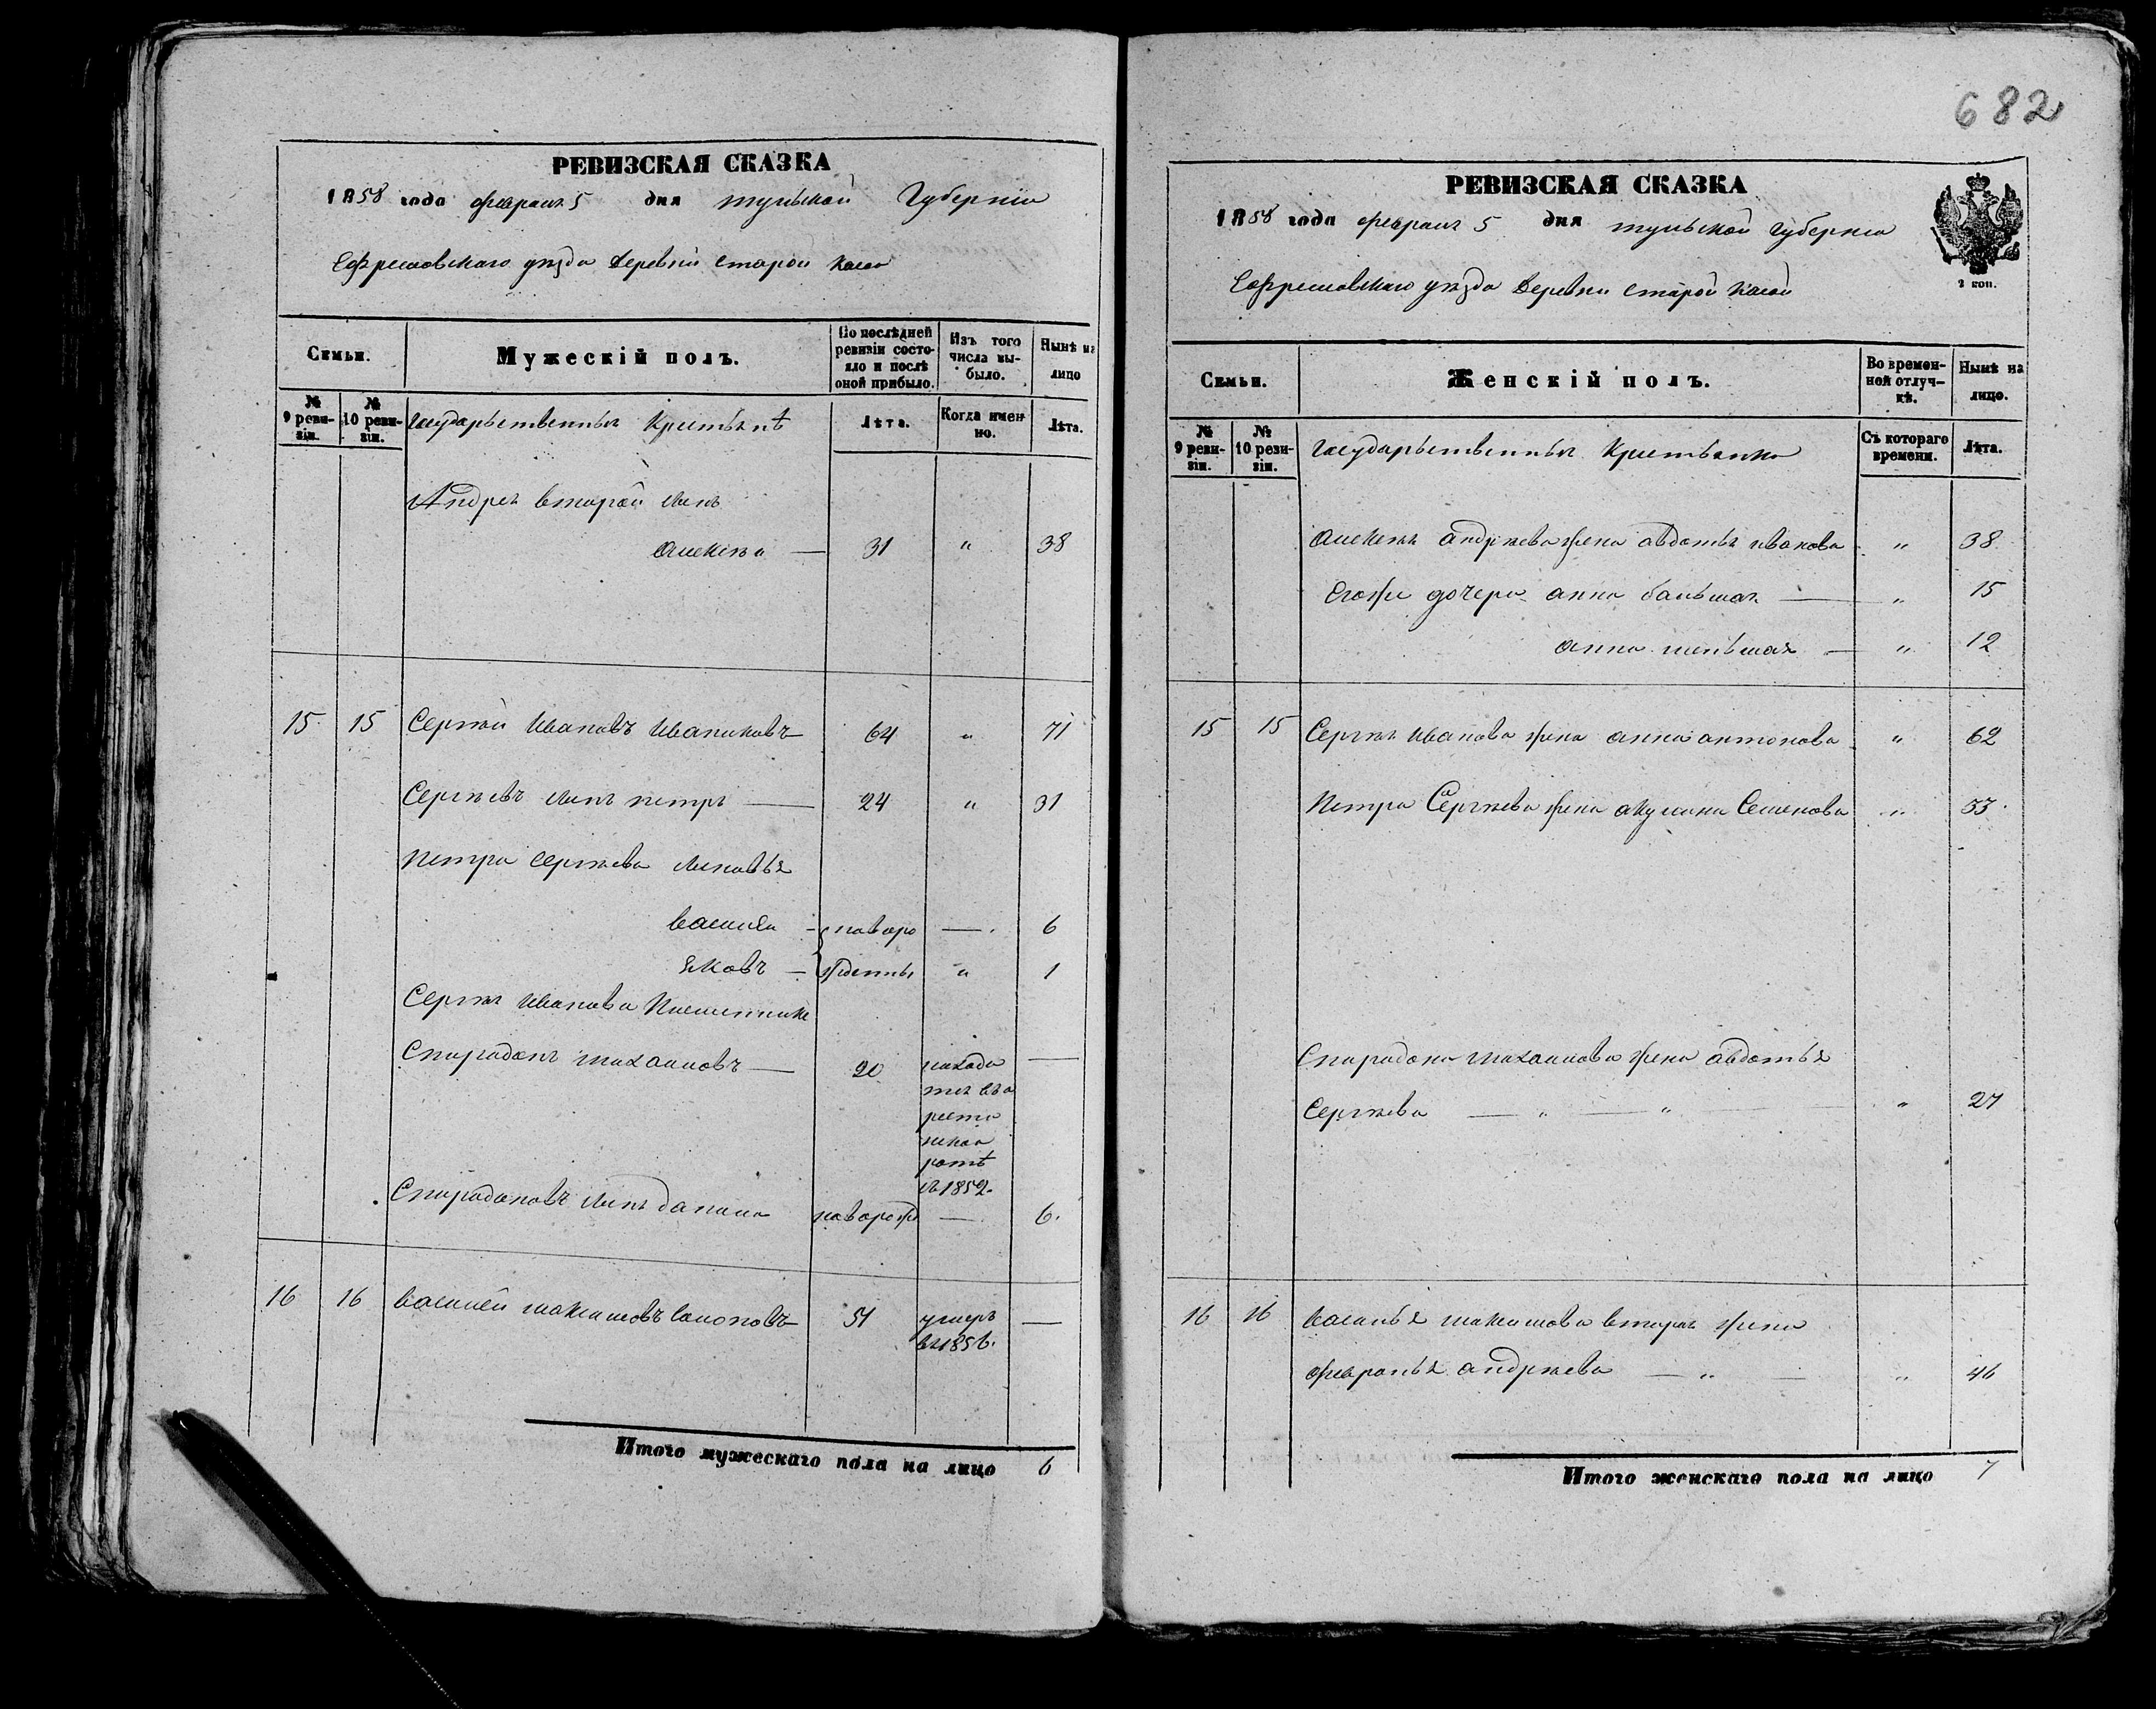 682
РЕВИЗСКАЯ СКАЗКА
1858 года февраля 5 дня тульской Губерніи
Ефремовскаго уѣзда Деревни Старой
Семьи.
Мужескій полъ.
По послѣдней ревизіи состояло и послѣ оной прибыло.
Изъ того числа выбыло.
Нынѣ на лицо
№ 9 ревизіи.
№ 10 ревизіи.
Государственныя Крестьянѣ
Лѣта.
Когда именно.
Лѣта.
Андрея второй сынъ
Алексѣй — 31 " 38
15 15 Сергѣй Ивановъ Иваниковъ 64 " 71
Сергѣевъ сынъ петръ — 24 " 31
Петра Сергѣева сыновья
василій - новоро — 6
яковъ - жденны " 1
Сергѣя Иванова Племянникъ
Спиридонъ михаиловъ — 20 находи —
тся въ а
реста
нской
ротѣ
съ 1852.
Спиридоновъ сынъ данила новорож — 6.
16 16 василей максимовъ 51 умеръ —
въ 1856.
Итого мужескаго пола на лицо 6
РЕВИЗСКАЯ СКАЗКА
1858 года февраля 5 дня тульской губерніи
Ефремовскаго уѣзда Деревни Старой
2 коп.
Семьи.
Женскій полъ.
Во временной отлучкѣ.
Нынѣ на лицо.
№ 9 ревизіи.
№ 10 ревизіи.
Государственныя Крестьянки
Съ котораго времени.
Лѣта.
Алексѣя андрѣева жена авдотья иванова " 38
Егоже дочери анна большая — " 15
анна меньшая — " 12
15 15 Сергѣя иванова жена анна антонова " 62
Петра Сергѣева жена акулина Семенова " 33
Спиридона михаилова жена авдотья
Сергѣева — " — " " 27
16 16 василья максимова вторая жена
февронья андрѣева — " — " 46
Итого женскаго пола на лицо 7